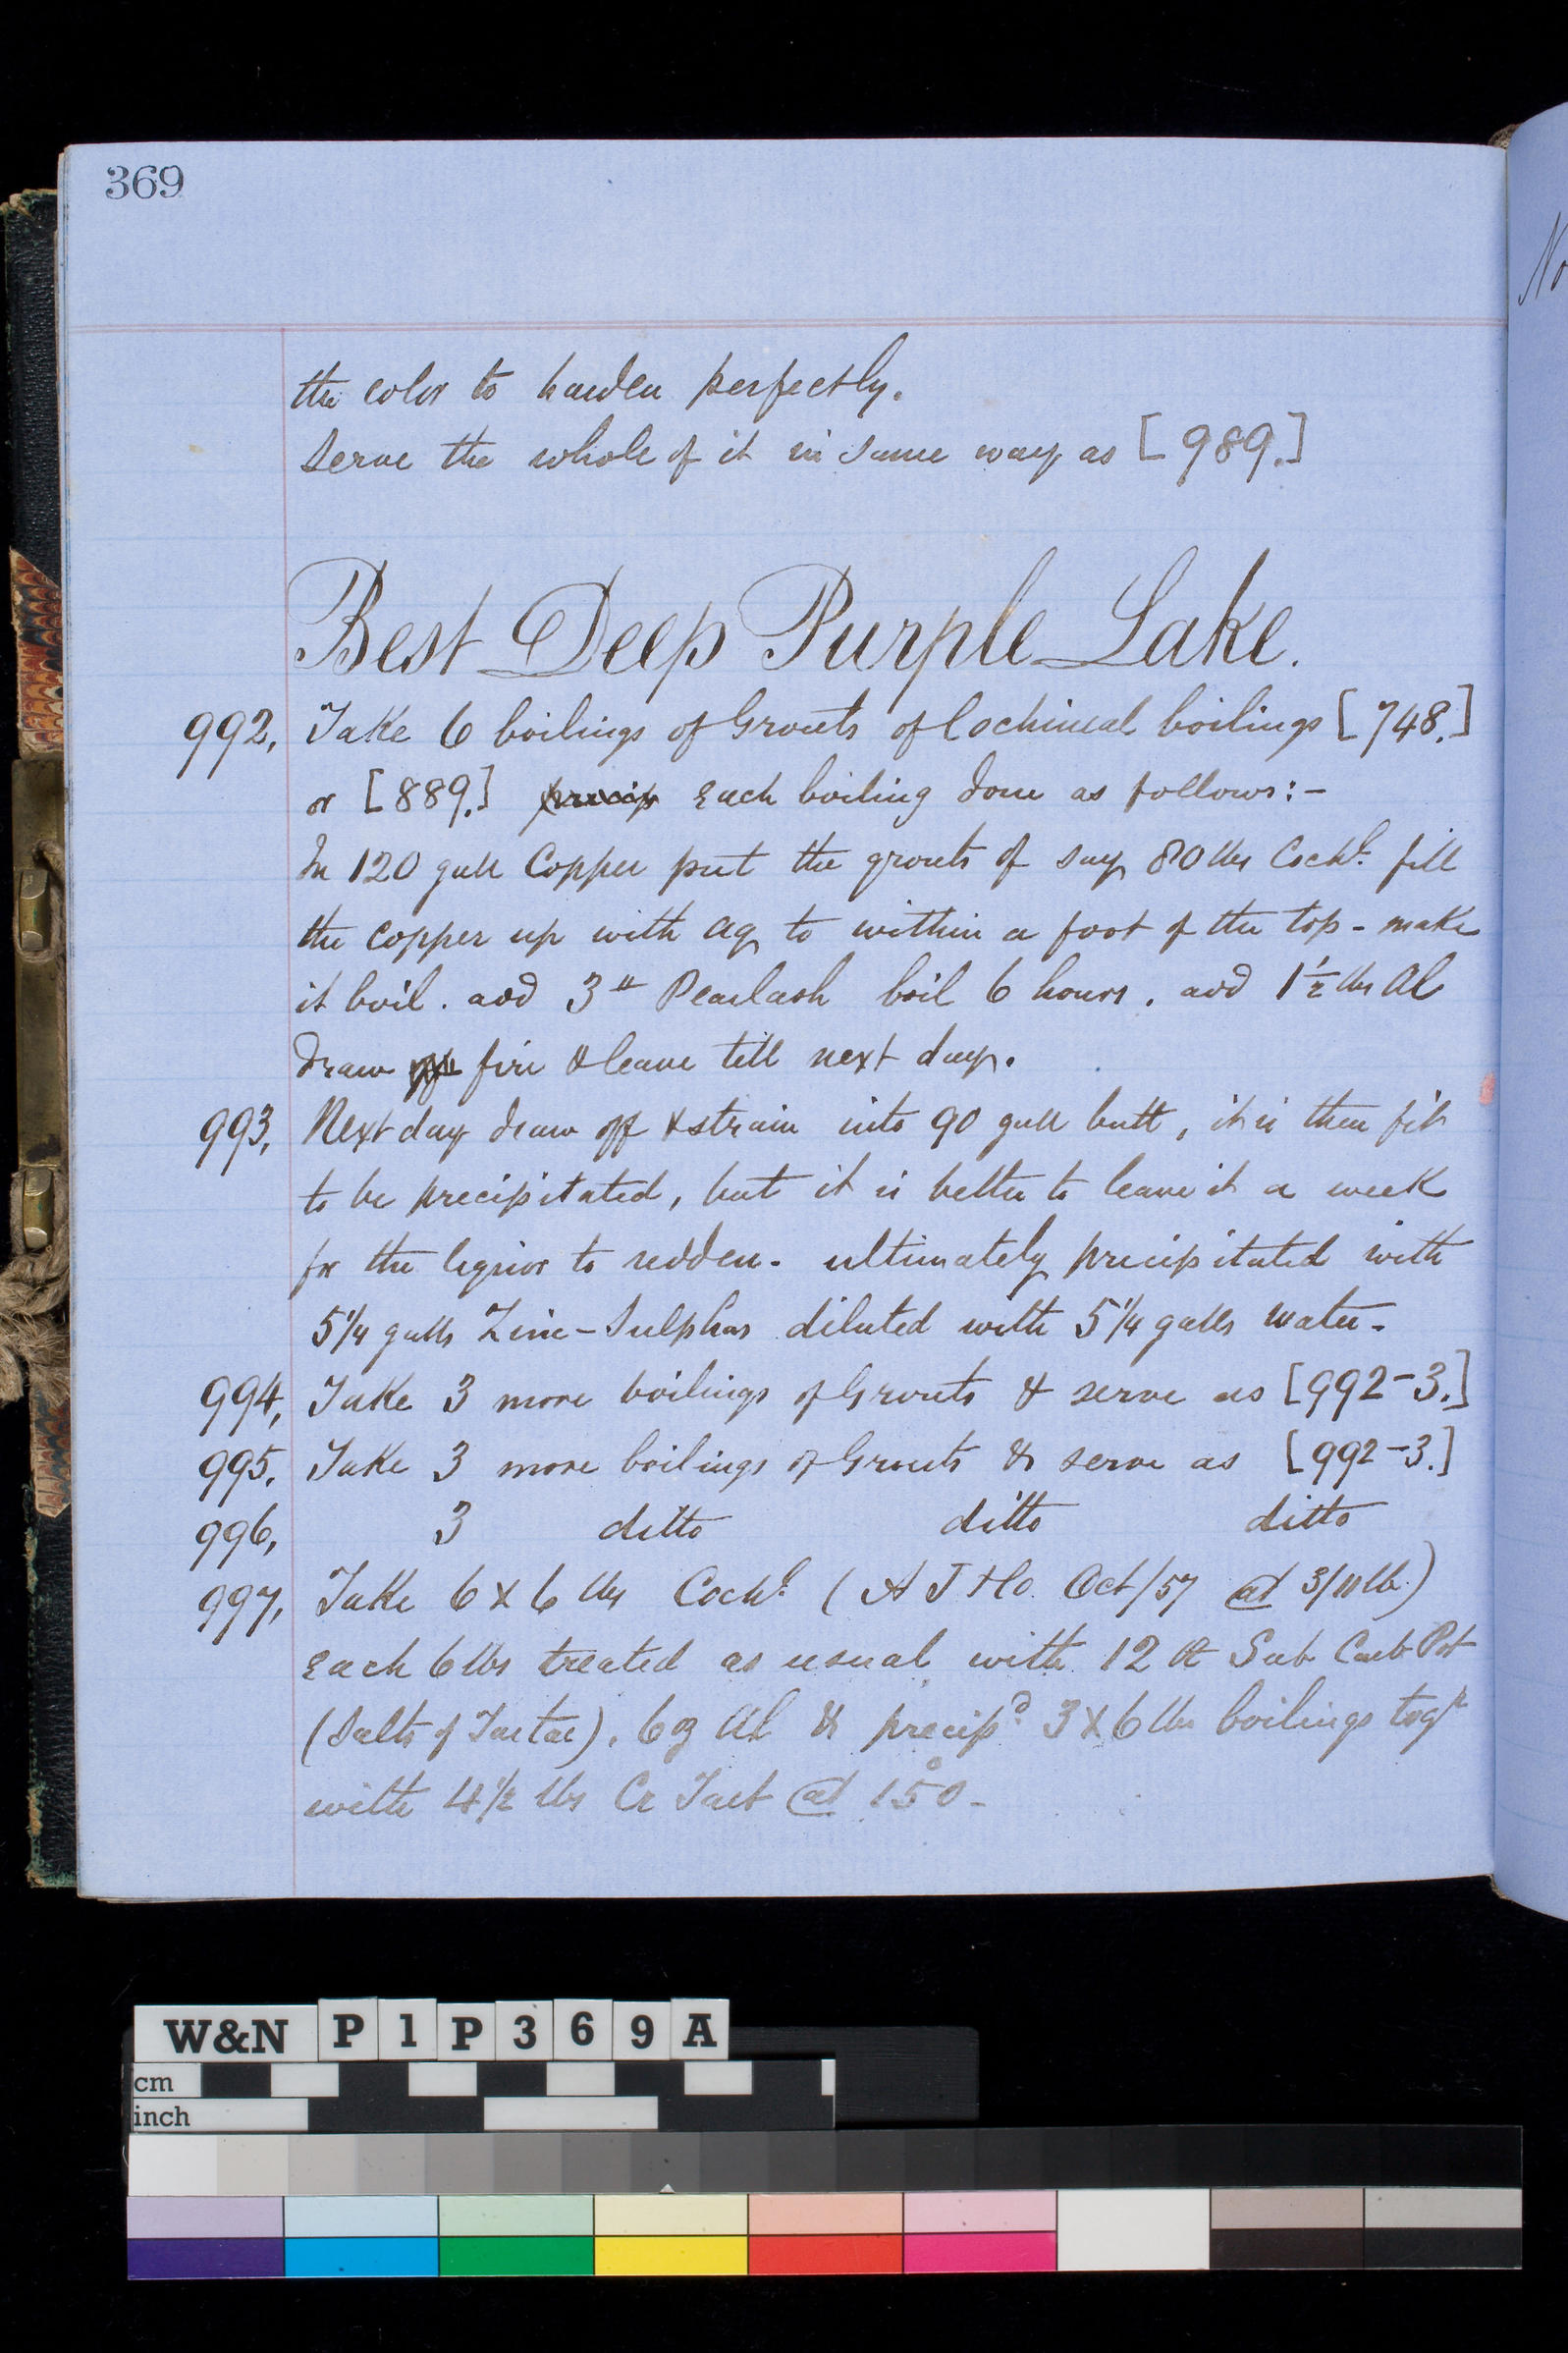 369
the color to harden perfectly.
Serve the whole of it in same way as [989.]
Best Deep Purple Lake.
992, Take 6 boilings of Grouts of Cochineal boilings [748.]
or [889.] precip Each boiling done as follows:-
In 120 gall Copper put the grouts of say 80 lbs Cochl. fill
the copper up with aq to within a foot of the top - make
it boil. add 3 " Pearlash boil 6 hours. add 1½ lbs Al
draw off fire & leave till next day.
993, Next day draw off & strain into 90 gall butt, it is then fit
to be precipitated, but it is better to leave it a week
for the liquor to redden - ultimately precipitated with
5 1/4 galls Zinc-Sulphas diluted with 5 1/4 galls water -
994, Take 3 more boilings of Grouts & serve as [992-3.]
995, Take 3 more boilings of Grouts & serve as [992-3.]
996, 3 ditto ditto ditto
997, Take 6 x 6 lbs Cochl. ( Oct/57 @ 3/11 lb.)
Each 6 lbs treated as usual with 12 Sub Carb Pot
(Salts of Tartar), 6 oz Al & precipd. 3 x 6 lbs boilings togr
with 4 1/2 lbs Cr Tart @ 150° -
No
W&N P1P369A
cm
inch